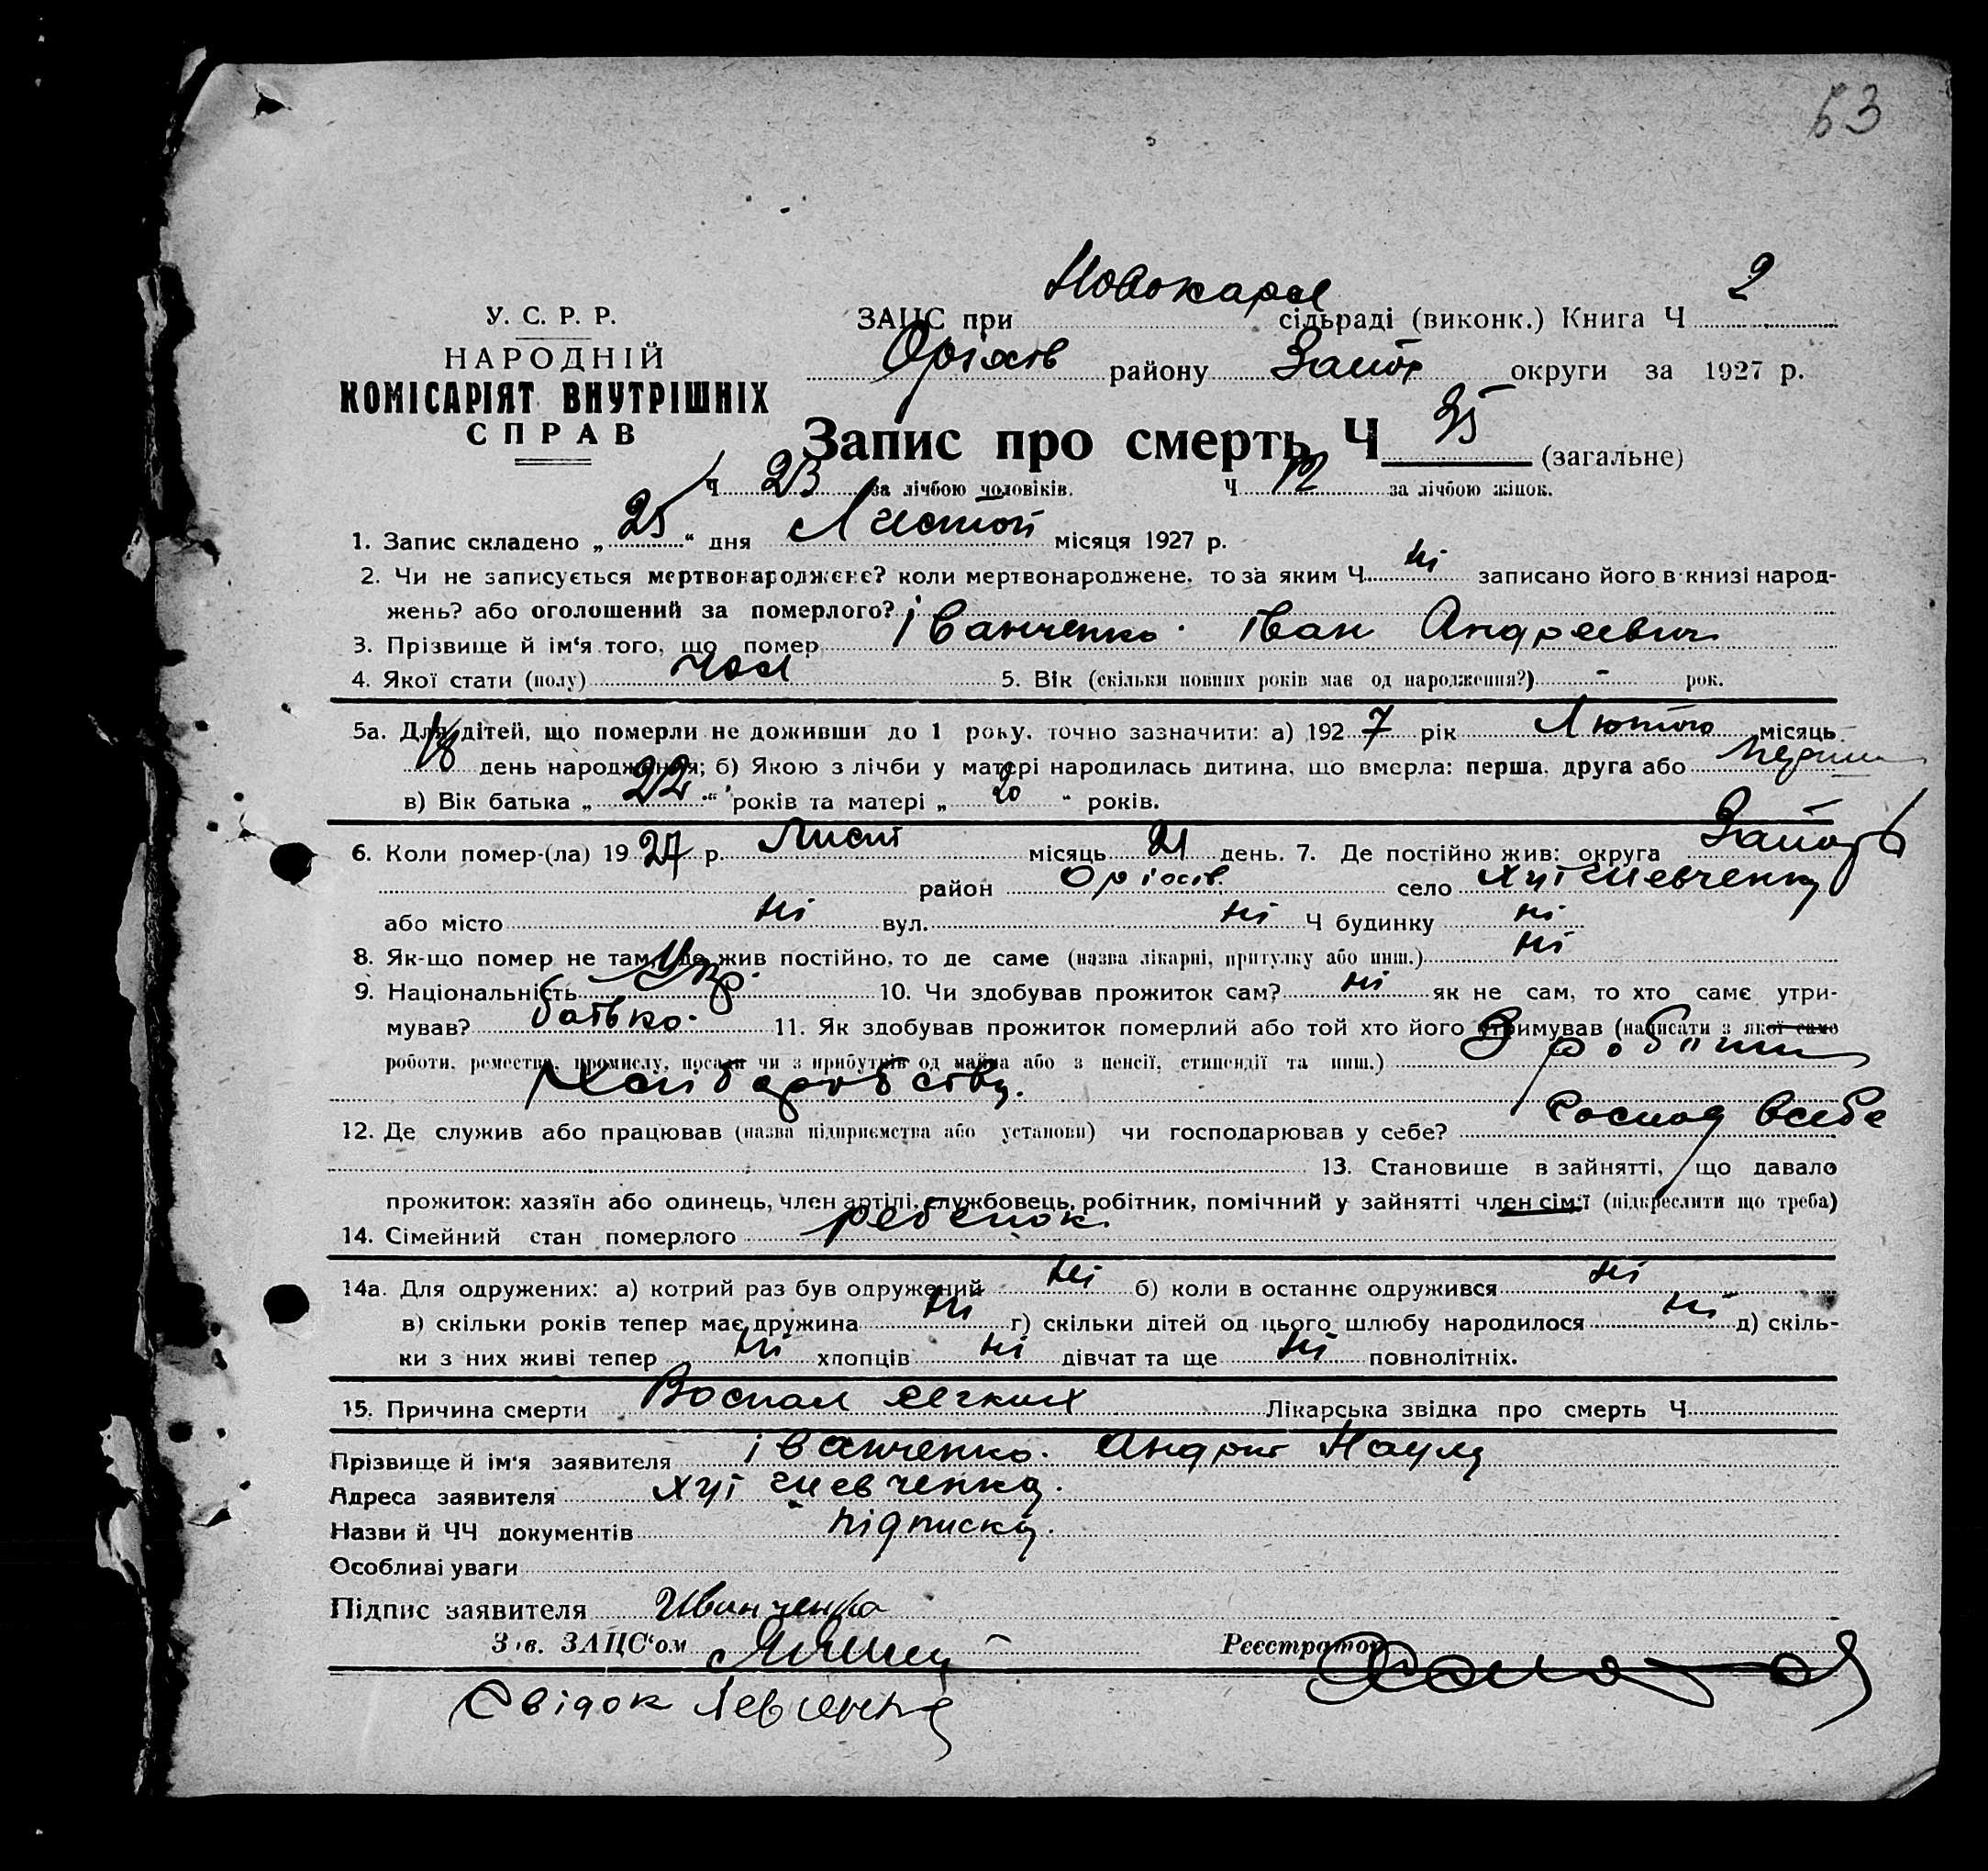 63
У. С. Р. Р.
НАРОДНІЙ
КОМІСАРІЯТ ВНУТРІШНІХ
СПРАВ
ЗАЦС при Новокарл сільраді (виконк.) Книга Ч 2
Оріхів району Запор округи за 1927 р.
Запис про смерть Ч 35 (загальне)
Ч 23 за лічбою чоловіків. Ч 12 за лічбою жінок.
1. Запис складено „ 25 “ дня Листоп місяця 1927 р.
2. Чи не записується мертвонароджене? коли мертвонароджене, то за яким Ч ні записано його в книзі народ-
жень? або оголошений за померлого?
3. Прізвище й ім‘я того, що помер Іванченко Іван Андреевич
4. Якої стати (полу) чол 5. Вік (скільки повних років має од народження?) - рок.
5а. Для дітей, що померли не доживши до 1 року, точно зазначити: а) 192 7 рік Лютого місяць
день народження; б) Якою з лічби у матері народилась дитина, що вмерла: перша, друга або перша
в) Вік батька „ 22 “ років та матері „ 20 “ років.
6. Коли помер-(ла) 19 27 р. Лист місяць 21 день. 7. Де постійно жив: округа Запор
район Оріхів. село хут Шевченку
або місто ні вул. ні Ч будинку ні
8. Як-що помер не там, де жив постійно, то де саме (назва лікарні, притулку або инш.) ні
9. Національність Укр. 10. Чи здобував прожиток сам? ні як не сам, то хто саме утри-
мував? батько. 11. Як здобував прожиток померлий або той хто його утримував (написати з якої само
роботи, ремества, промислу, посади чи з прибутків од майна або з пенсії, стипендії та инш.) З робіти
хліборобству.
12. Де служив або працював (назва підприємства або установи) чи господарював у себе? Господ всебе
13. Становище в зайнятті, що давало
прожиток: хазяїн або одинець, член артілі, службовець, робітник, помічний у зайнятті член сім‘ї (підкреслити що треба)
14. Сімейний стан померлого ребенок.
14а. Для одружених: а) котрий раз був одружений ні б) коли в останнє одружився ні
в) скільки років тепер має дружина ні г) скільки дітей од цього шлюбу народилося ні д) скіль-
ки з них живі тепер ні хлопців ні дівчат та ще ні повнолітніх.
15. Причина смерти Воспал легких Лікарська звідка про смерть Ч
Прізвище й ім‘я заявителя Іванченко Андрій Наум
Адреса заявителя хут Шевченку.
Назви й ЧЧ документів підписку.
Особливі уваги
Підпис заявителя Иванченко
Зав. ЗАЦС‘ом Реєстратор
Свідок